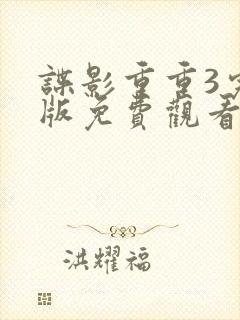 諜影重重3
版免費觀看
洪耀福